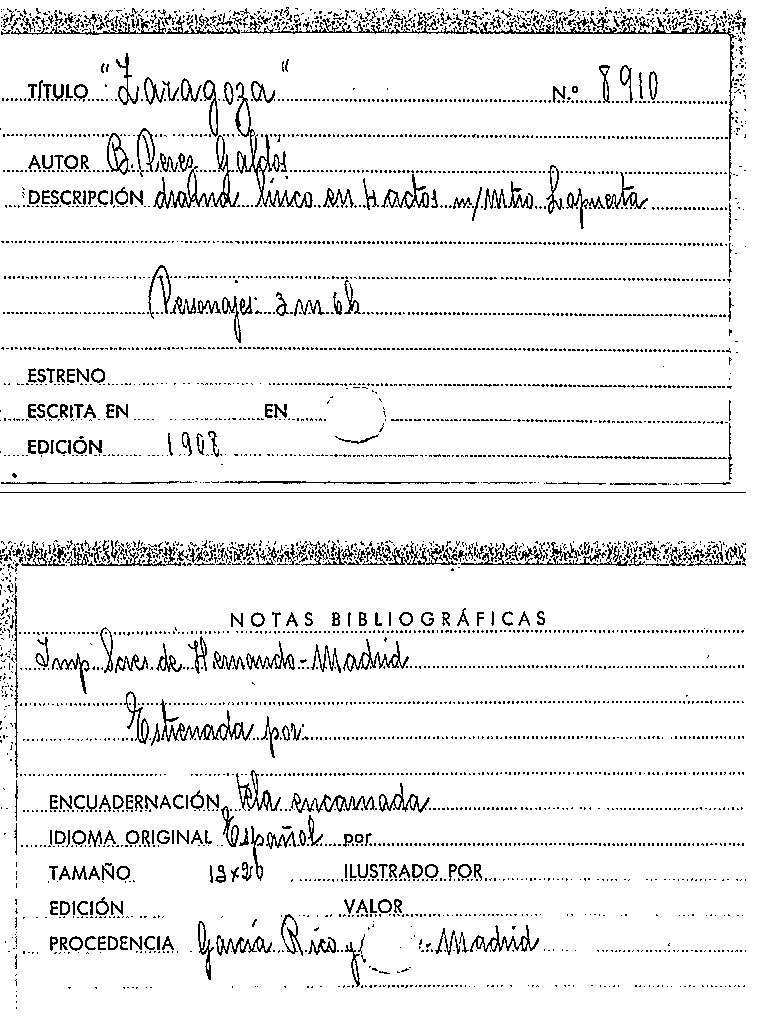 TÍTULO "Zaragoza" N.º 8910
AUTOR B. Perez Galdós
DESCRIPCIÓN drama lírico en 4 actos m/Mtro. Lapuerta
Personajes: 3 m 6 h
ESTRENO
ESCRITA EN EN
EDICIÓN 1908
NOTAS BIBLIOGRÁFICAS
Imp. Sores. de Hernando - Madrid
Estrenada por:
ENCUADERNACIÓN tela encarnada
IDIOMA ORIGINAL Español por
TAMAÑO ILUSTRADO POR
EDICIÓN VALOR
PROCEDENCIA García Rico y - Madrid